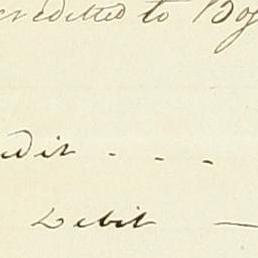 creditted to Boy
edit - - -
Debit —